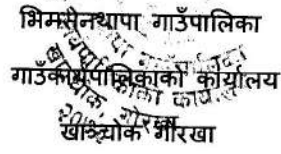 भिमसेनथापा गाउँपालिका
गाउँकार्यपालिकाको कार्यालय
खाञ्चोक गोरखा